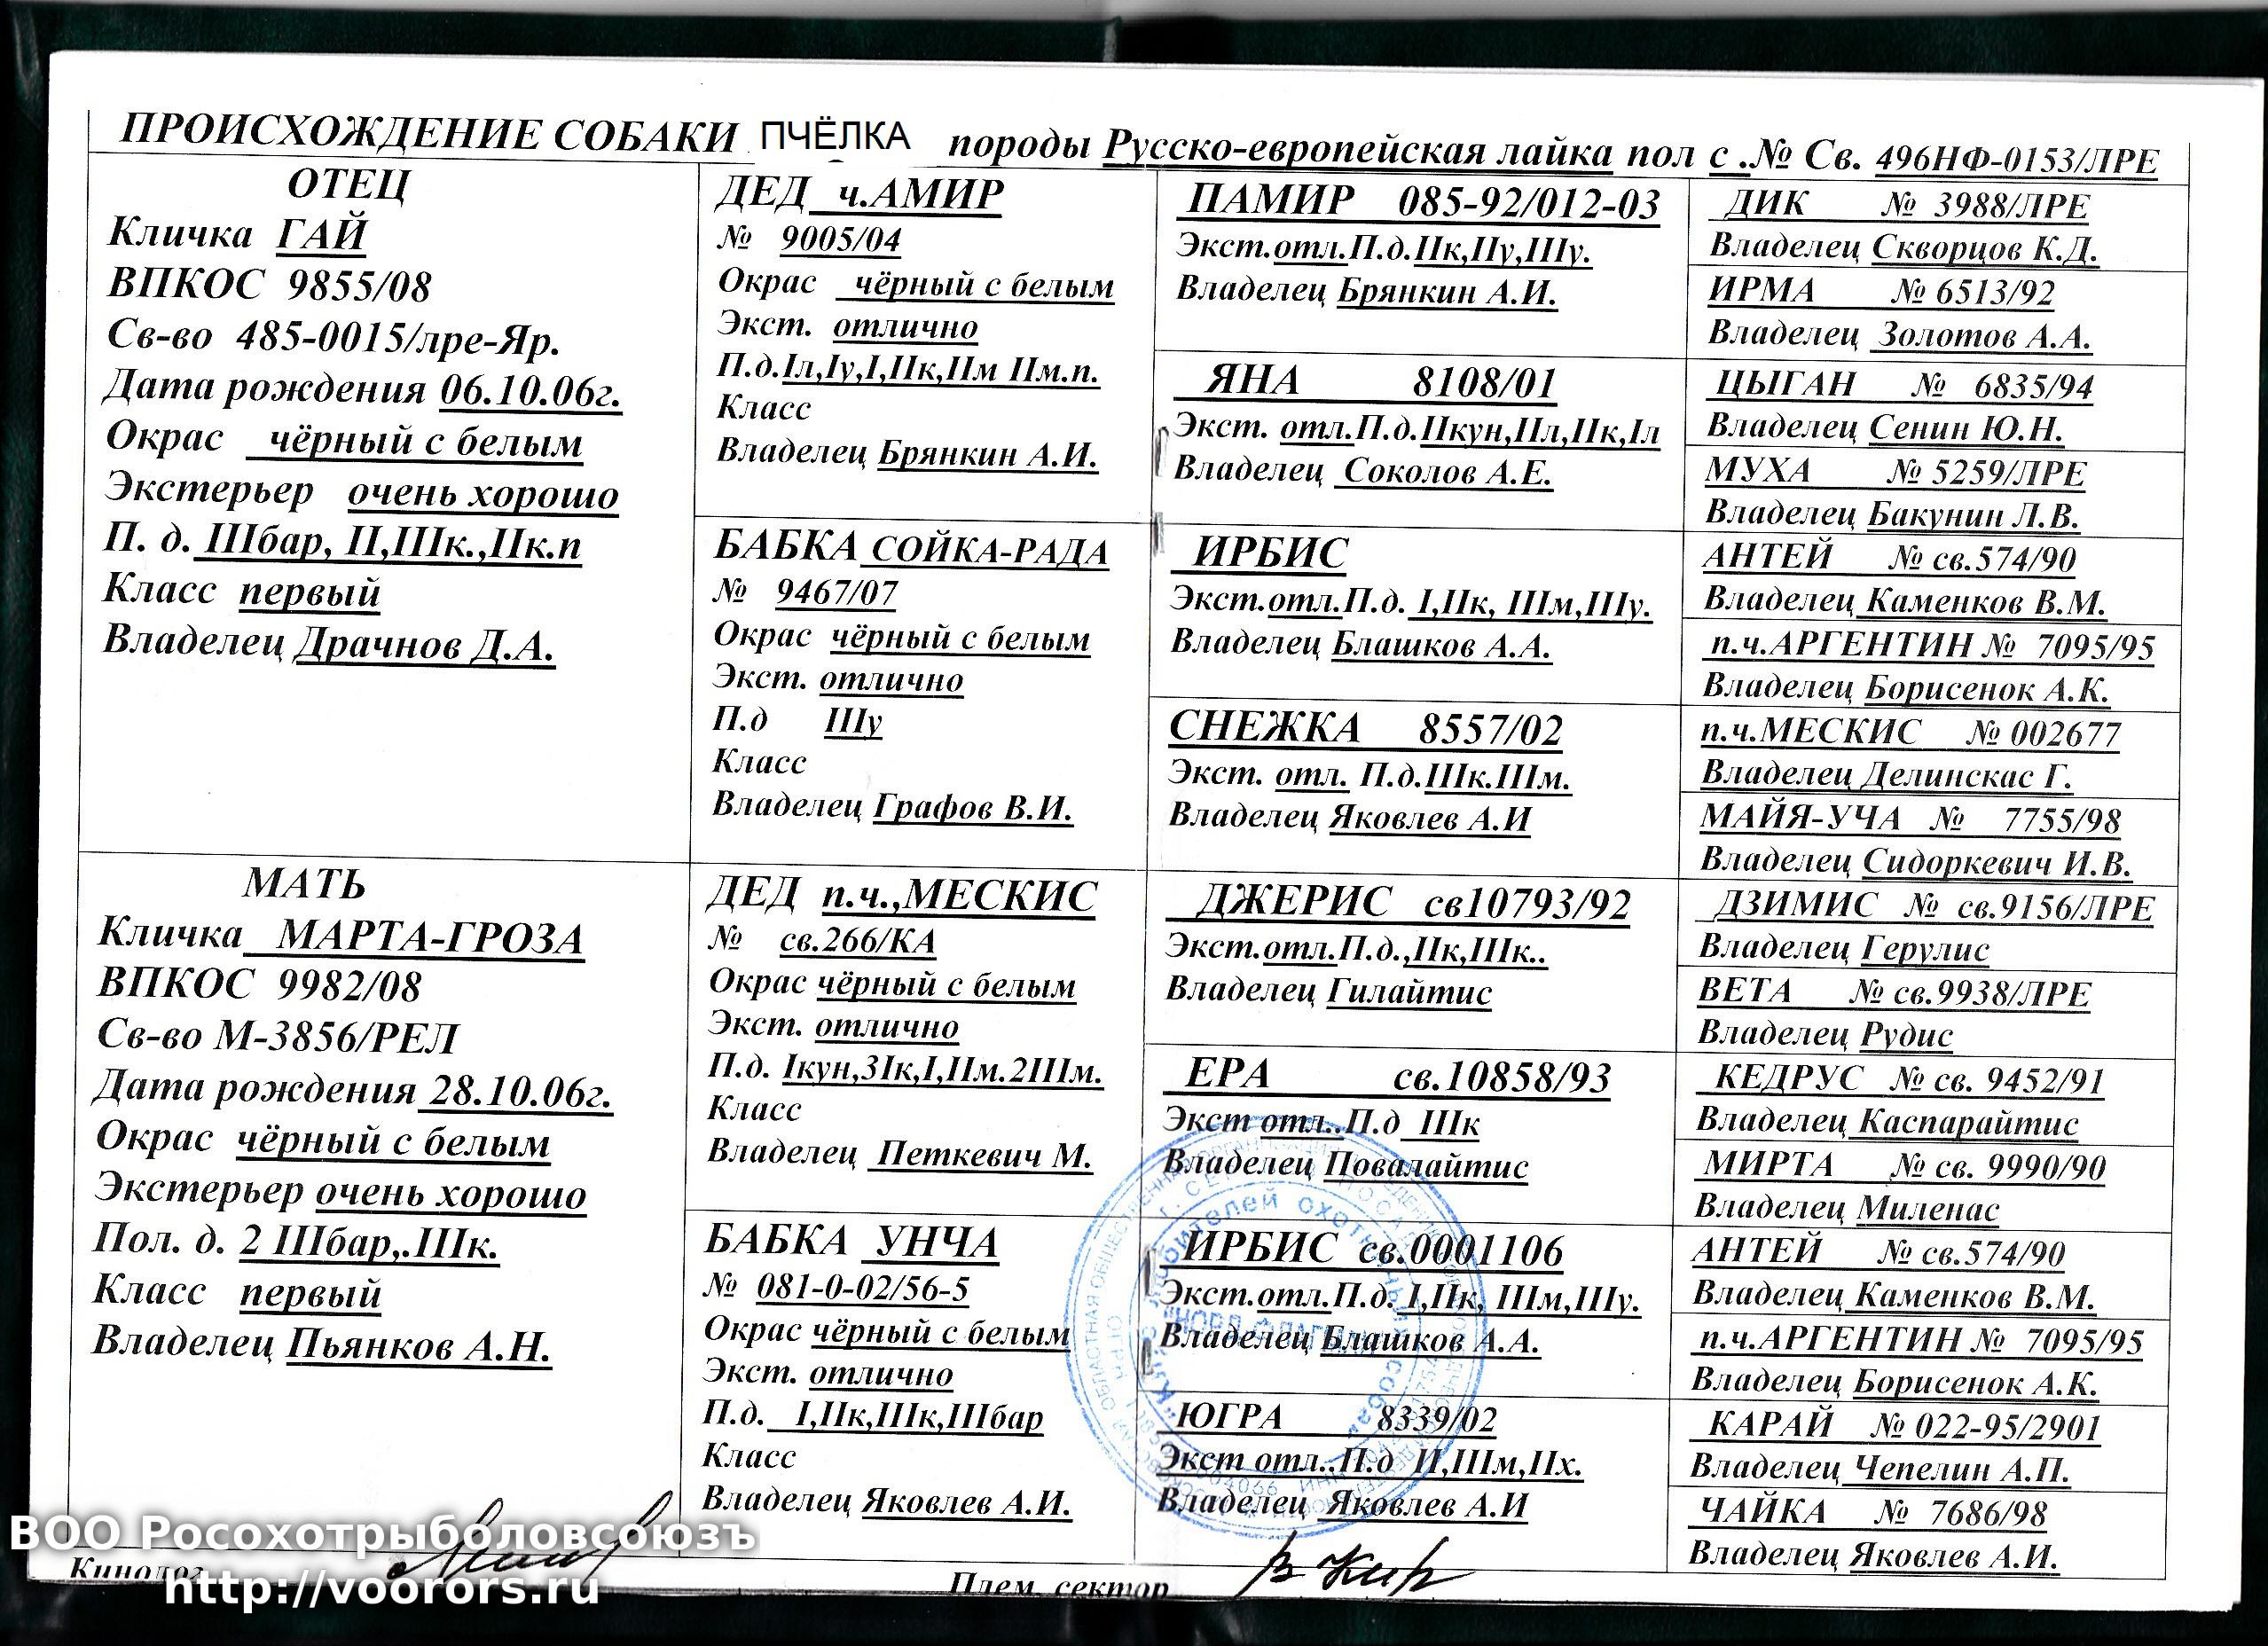 ПРОИСХОЖДЕНИЕ СОБАКИ ПЧЁЛКА породы Русско-европейская лайка пол с .№ Св. 496НФ-0153/ЛРЕ
ОТЕЦ
Кличка ГАЙ
ВПКОС 9855/08
Св-во 485-0015/лре-Яр.
Дата рождения 06.10.06г.
Окрас чёрный с белым
Экстерьер очень хорошо
П. д. IIIбар, II,IIIк.,IIк.п
Класс первый
Владелец Драчнов Д.А.
МАТЬ
Кличка МАРТА-ГРОЗА
ВПКОС 9982/08
Св-во М-3856/РЕЛ
Дата рождения 28.10.06г.
Окрас чёрный с белым
Экстерьер очень хорошо
Пол. д. 2 IIIбар,.IIIк.
Класс первый
Владелец Пьянков А.Н.
ДЕД ч.АМИР
№ 9005/04
Окрас чёрный с белым
Экст. отлично
П.д.Iл,Iу,I,IIк,IIм IIм.п.
Класс
Владелец Брянкин А.И.
БАБКА СОЙКА-РАДА
№ 9467/07
Окрас чёрный с белым
Экст. отлично
П.д IIIу
Класс
Владелец Графов В.И.
ДЕД п.ч.,МЕСКИС
№ св.266/КА
Окрас чёрный с белым
Экст. отлично
П.д. Iкун,3Iк,I,IIм.2IIIм.
Класс
Владелец Петкевич М.
БАБКА УНЧА
№ 081-0-02/56-5
Окрас чёрный с белым
Экст. отлично
П.д. I,IIк,IIIк,IIIбар
Класс
Владелец Яковлев А.И.
ПАМИР 085-92/012-03
Экст.отл.П.д.IIк,IIу,IIIу.
Владелец Брянкин А.И.
ЯНА 8108/01
Экст. отл.П.д.IIкун,IIл,IIк,Iл
Владелец Соколов А.Е.
ИРБИС
Экст.отл.П.д. I,IIк, IIIм,IIIу.
Владелец Блашков А.А.
СНЕЖКА 8557/02
Экст. отл. П.д.IIIк.IIIм.
Владелец Яковлев А.И
ДЖЕРИС св10793/92
Экст.отл.П.д.,IIк,IIIк..
Владелец Гилайтис
ЕРА св.10858/93
Экст отл..П.д IIIк
Владелец Повалайтис
ИРБИС св.0001106
Экст.отл.П.д. I,IIк, IIIм,IIIу.
Владелец Блашков А.А.
ЮГРА 8339/02
Экст отл..П.д II,IIIм,IIх.
Владелец Яковлев А.И
ДИК № 3988/ЛРЕ
Владелец Скворцов К.Д.
ИРМА № 6513/92
Владелец Золотов А.А.
ЦЫГАН № 6835/94
Владелец Сенин Ю.Н.
МУХА № 5259/ЛРЕ
Владелец Бакунин Л.В.
АНТЕЙ № св.574/90
Владелец Каменков В.М.
п.ч.АРГЕНТИН № 7095/95
Владелец Борисенок А.К.
п.ч.МЕСКИС № 002677
Владелец Делинскас Г.
МАЙЯ-УЧА № 7755/98
Владелец Сидоркевич И.В.
ДЗИМИС № св.9156/ЛРЕ
Владелец Герулис
ВЕТА № св.9938/ЛРЕ
Владелец Рудис
КЕДРУС № св. 9452/91
Владелец Каспарайтис
МИРТА № св. 9990/90
Владелец Миленас
АНТЕЙ № св.574/90
Владелец Каменков В.М.
п.ч.АРГЕНТИН № 7095/95
Владелец Борисенок А.К.
КАРАЙ № 022-95/2901
Владелец Чепелин А.П.
ЧАЙКА № 7686/98
Владелец Яковлев А.И.
любителей охотничьих собак
Кинолог
Плем. сектор
ВОО Росохотрыболовсоюзъ
http://voorors.ru